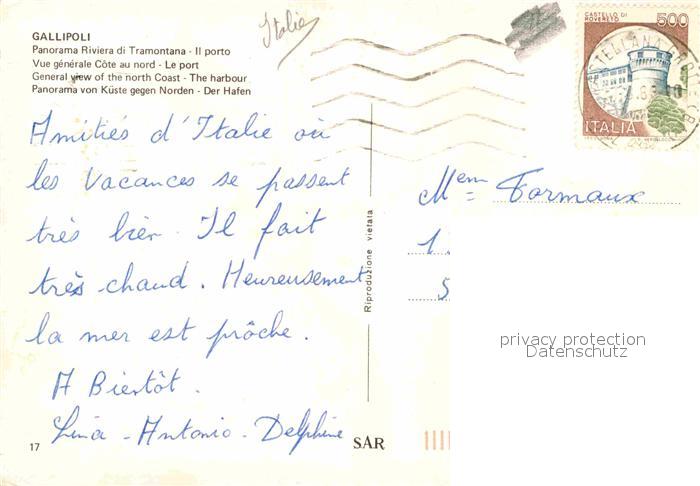 GALLIPOLI
Panorama Riviera di Tramontana - Il porto
Vue générale Côte au nord - Le port
General view of the north Coast - The harbour
Panorama von Küste gegen Norden - Der Hafen
Italie
CASTELLO DI ROVERETO
500
ITALIA
Amitiés d'Italie où
les Vacances se passent
très bien. Il fait
très chaud. Heureusement
la mer est prôche.
A Bientôt.
Lina - Antonio - Delphine
Riproduzione vietata
Mem Tormaux
1
5
privacy protection
Datenschutz
17
SAR